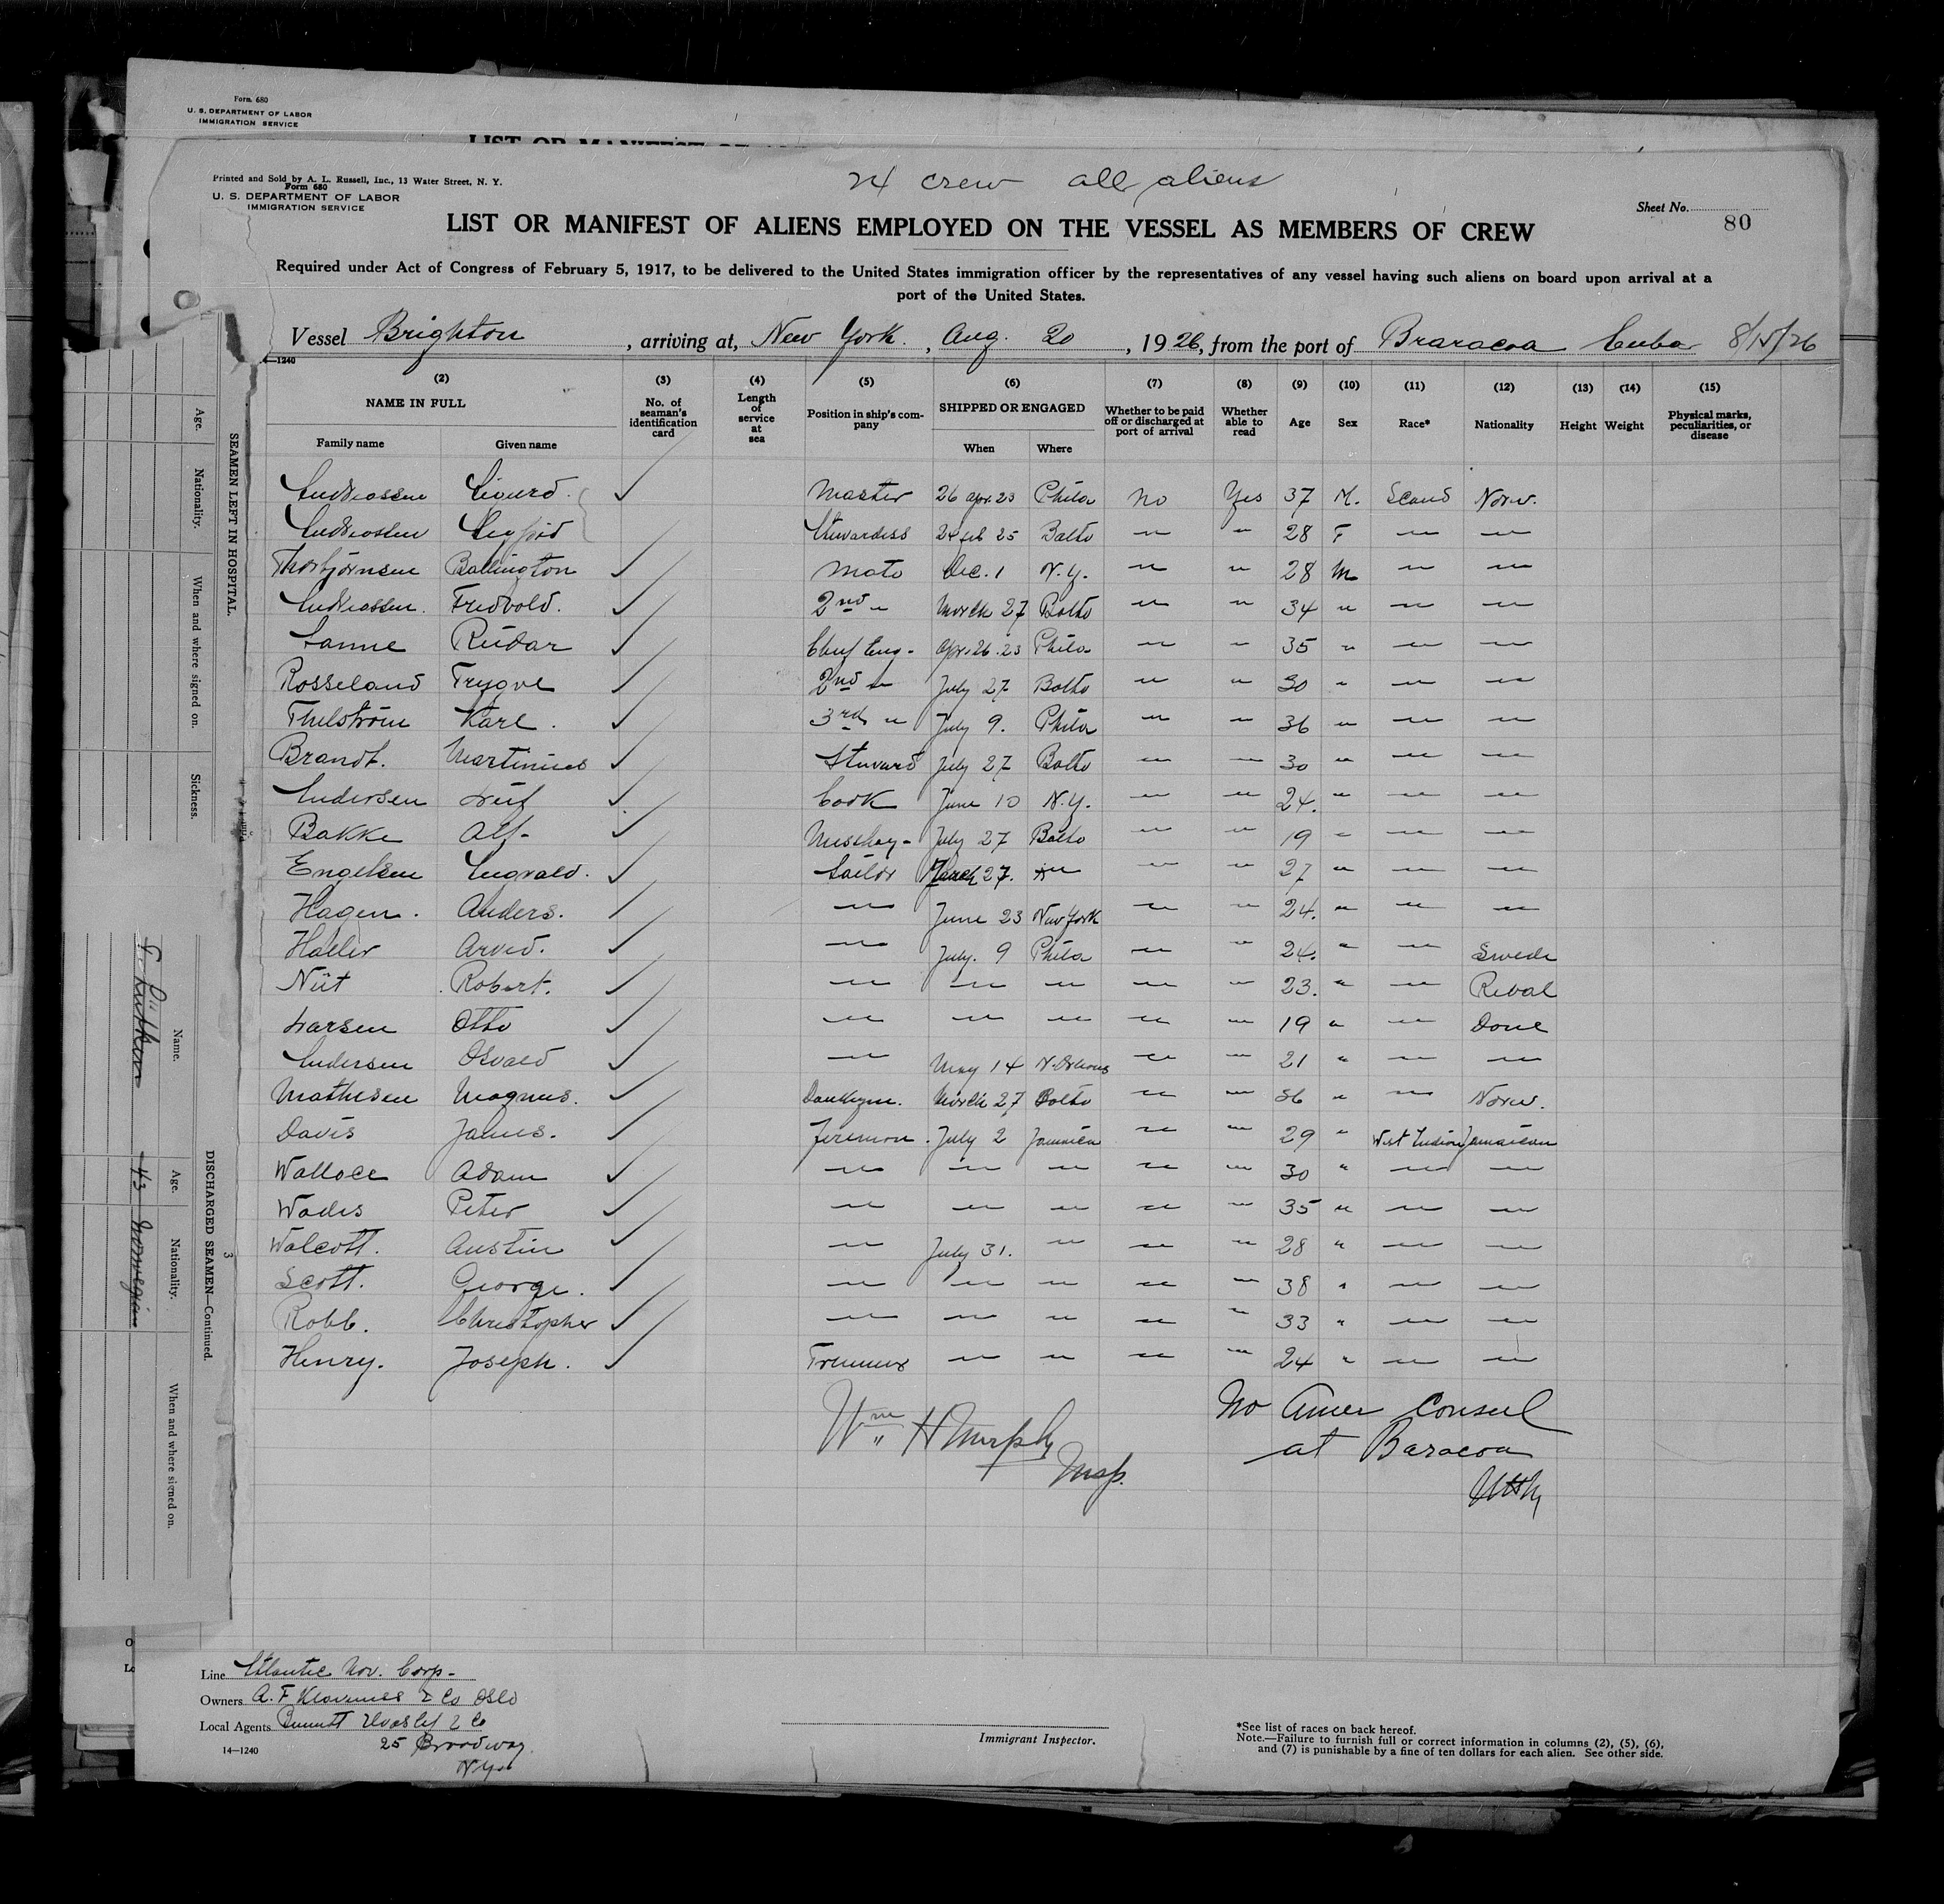 Form 680
U. S. DEPARTMENT OF LABOR
IMMIGRATION SERVICE
Printed and Sold by A. L. Russell, Inc., 13 Water Street, N. Y.
Form 680
U. S. DEPARTMENT OF LABOR
IMMIGRATION SERVICE
24 crew all aliens
Sheet No. 80
LIST OR MANIFEST OF ALIENS EMPLOYED ON THE VESSEL AS MEMBERS OF CREW
Required under Act of Congress of February 5, 1917, to be delivered to the United States immigration officer by the representatives of any vessel having such aliens on board upon arrival at a
port of the United States.
Vessel Brighton, arriving at, New York, Aug. 20, 1926, from the port of Braracoa Cuba 8/15/26
1240
(2) (3) (4) (5) (6) (7) (8) (9) (10) (11) (12) (13) (14) (15)
NAME IN FULL No. of seaman's identification card Length of service at sea Position in ship's company SHIPPED OR ENGAGED Whether to be paid off or discharged at port of arrival Whether able to read Age Sex Race* Nationality Height Weight Physical marks, peculiarities, or disease
Family name Given name When Where
Andreassen Sigurd. ✓ Master 26 apr. 23 Phila No Yes 37 M. Scand Norw.
Andreassen Stewardess 24 feb 25 Balto " " 28 F " "
Thorbjörnsen Ballington ✓ Mate Dec. 1 N.Y. " " 28 M " "
Andreassen. Fredvold. ✓ 2nd " March 27 Balto " " 34 " " "
Sanne Reidar ✓ Chief Eng. Apr. 26. 23 Phila " " 35 " " "
Rosseland Trygve ✓ 2nd " July 27 Balto " " 30 " " "
Thelström Karl. ✓ 3rd " July 9. Phila " " 36 " " "
Brandt. Martinius ✓ Steward July 27 Balto " " 30 " " "
Andersen Leif ✓ Cook June 10 N.Y. " " 24. " " "
Bakke Alf- ✓ Messboy- July 27 Balto " " 19 " " "
Engelsen Ingvald. ✓ Sailor March 27. " " " 27 " " "
Hagen. Anders. ✓ " June 23 New York " " 24. " " "
Haller Arvid. ✓ " July. 9 Phila " " 24. " " Swede
Niit Robert. ✓ " " " " " 23. " " Reval
Larsen Otto ✓ " " " " " 19 " " Dane
Andersen Osvald ✓ " May 14 N. Orleans " " 21 " " "
Mathisen Magnus. ✓ Donkeym. March 27 Balto " " 36 " " Norw.
Davis James. ✓ Fireman. July 2 Jamaica " " 29 " West Indian Jamaican
Wallace Adam ✓ " " " " " 30 " " "
Wades Peter ✓ " " " " " 35 " " "
Walcott. Austin ✓ " July 31. " " " 28 " " "
Scott. George. ✓ " " " " " 38 " " "
Robb. Christopher ✓ " " " " " 33 " " "
Henry. Joseph. ✓ Trimmer " " " " 24 " " "
Wm H Murphy
Insp.
No Amer Consul
at Baracoa
WHM
Line Atlantic Nav. Corp-
Owners A. F. Klaveness & Co Oslo
Local Agents Bennett Hvoslef & Co
25 Broadway.
N.Y.
14—1240
Immigrant Inspector.
*See list of races on back hereof.
Note.—Failure to furnish full or correct information in columns (2), (5), (6),
and (7) is punishable by a fine of ten dollars for each alien. See other side.
SEAMEN LEFT IN HOSPITAL.
Age. Nationality. When and where signed on. Sickness.
DISCHARGED SEAMEN—Continued.
3
Name. Age. Nationality. When and where signed on.
43 Norwegian